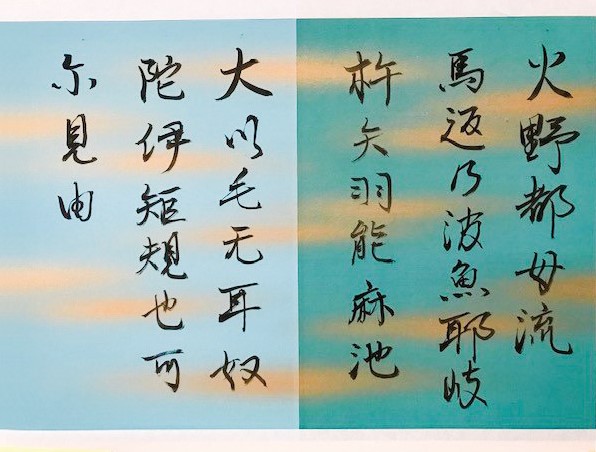 火野都母流
馬返乃波魚耶岐
杵矢羽能麻池
大以毛无耳奴
陀伊矩規也可
尓見由